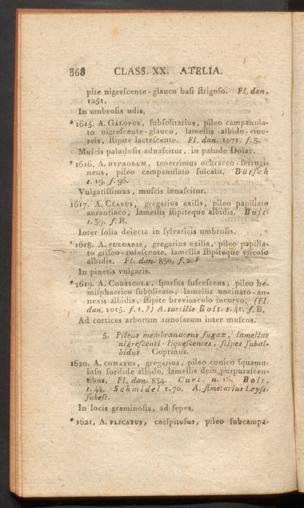 368 CLASS. XX. ATELIA.
pite nigrescente-glauco basi strigoso. Fl. dan.
1251.
In umbrosis udis.
* 1615. A. GALOPUS, subsolitarius, pileo campanula-
to nigrescente-glauco, lamellis albido-cine-
reis, stipite lactescente. Fl. dan. 1071. f. 3.
Muscis paludosis adnascitur, in palude Dölar.
* 1616. A. HYPNORUM, tenerrimus ochraceo-ferrugi-
neus, pileo campanulato sulcato, Batsch
t. 19. f. 96.
Vulgatissimus, muscis innascitur.
1617. A. CLAVUS, gregarius exilis, pileo papillato
aurantiaco, lamellis stipiteque albidis. Bolt
t. 39. f. B.
Inter folia dejecta in sylvaticis umbrosis.
* 1618. A. VULGARIS, gregarius exilis, pileo papilla-
to griseo-rufescente, lamellis stipiteque viscido
albidis. Fl. dan. 850. f. 2.?
In pinetis vulgaris.
* 1619. A. CORTICOLA, sparsus fuscescens, pileo he-
misphaerico substriato, lamellis uncinato-an-
nexis albidis, stipite breviusculo incurvo. (Fl.
dan. 1015. f. 1.?) A. tortilis Bolt. t. 41. f. B.
Ad cortices arborum annosarum inter muscos.
5. Pileus membranaceus fugax, lamellae
nigrescenti-liquescentes, stipes subal-
bidus Coprinus.
1620. A. COMATUS, gregarius, pileo conico squamu-
loso sordide albido, lamellis dein purpurascen-
tibus. Fl. dan. 834. Curt. n. 16. Bolt.
t. 44. Schmidel t. 70. A. fimetarius Leyss.
subest.
In locis graminosis, ad sepes.
* 1621. A. PLICATUS, caespitosus, pileo subcampa-